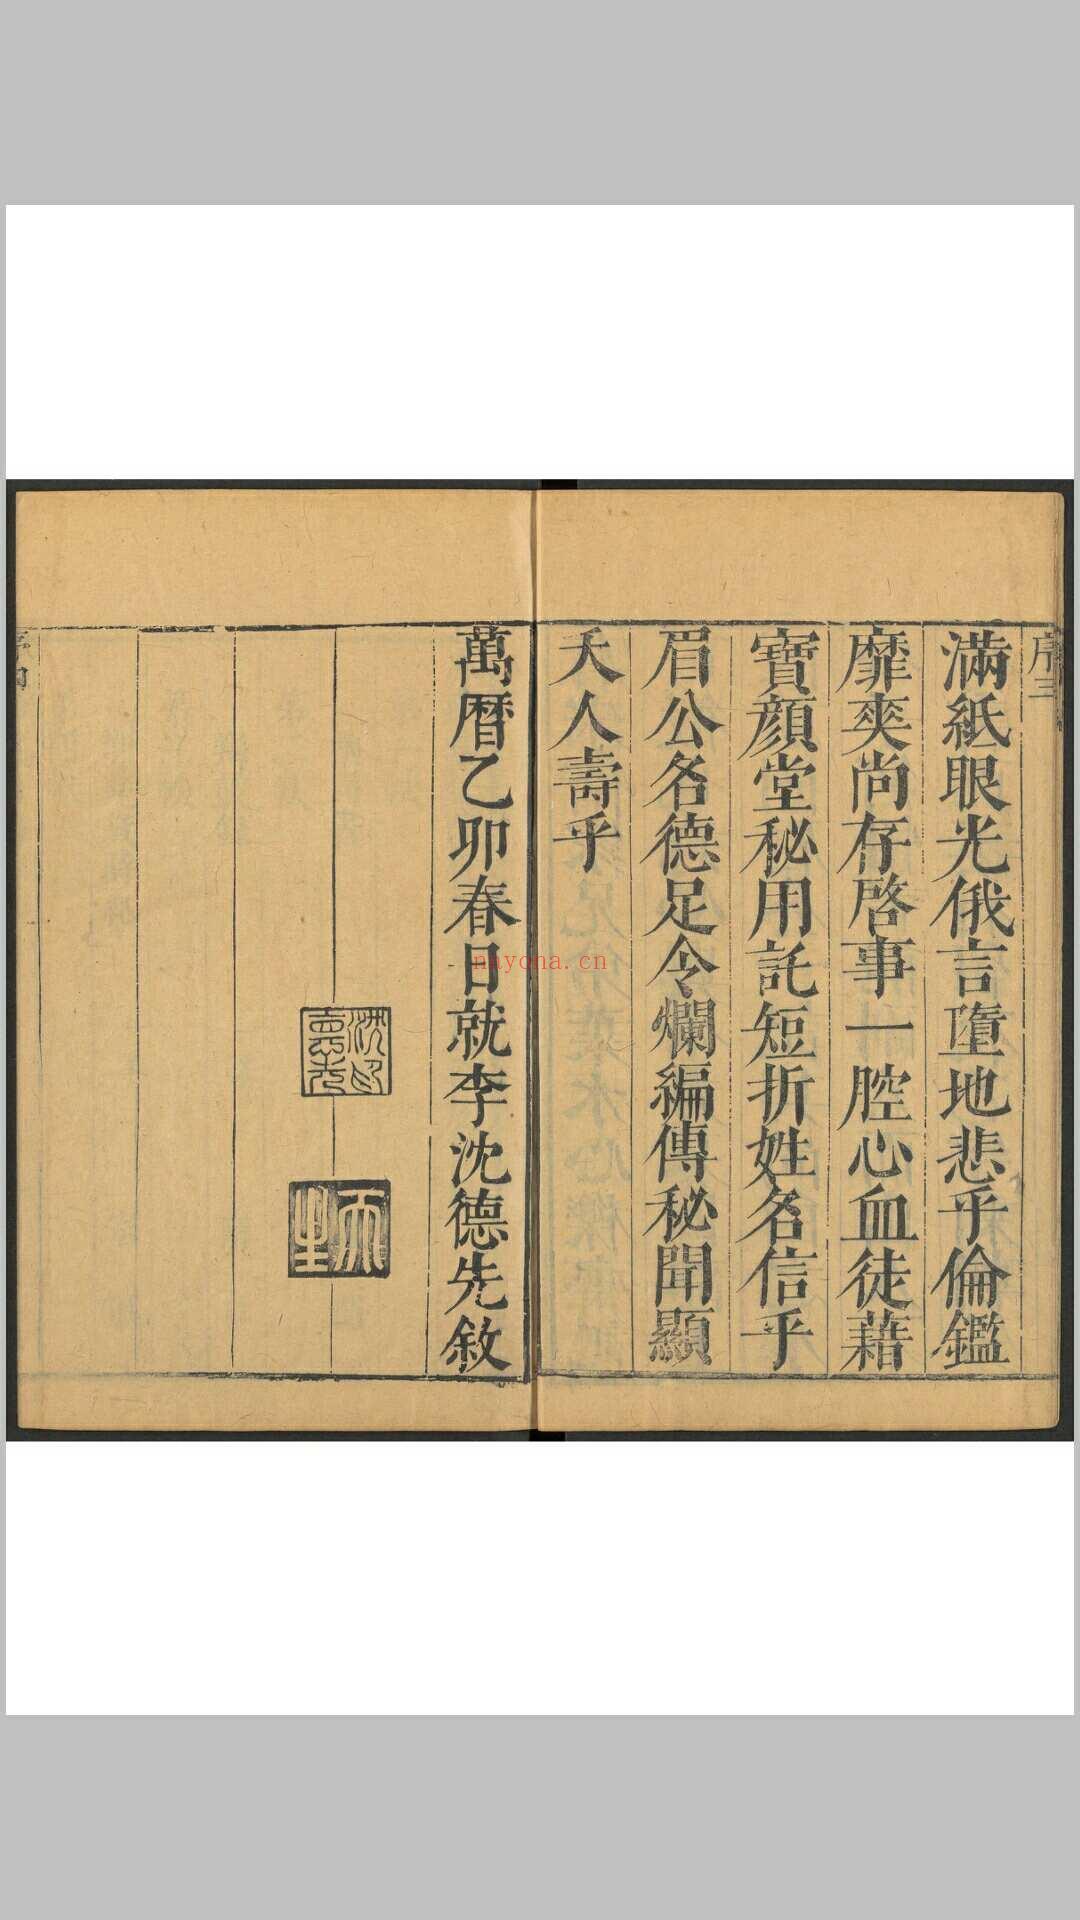 序三
滿紙眼光俄言墮地悲乎倫鑑
靡爽尚存啓事一腔心血徒藉
寶顏堂秘用託短折姓名信乎
眉公名德足令爛編傳秘聞顯
夭人壽乎
萬曆乙卯春日就李沈德先敘
沈印德先
天生
nnyona.cn